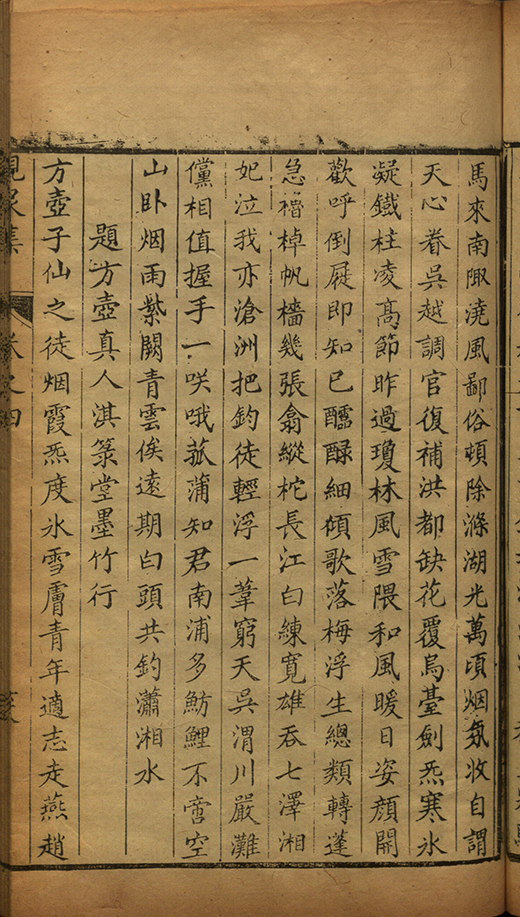 馬來南陬澆風鄙俗頓除滌湖光萬頃烟氛收自謂
天心眷吳越調官復補洪都缺花覆烏臺劍炁寒氷
凝鐵柱凌高節昨過瓊林風雪隈和風暖日姿顏開
歡呼倒屣即知已醹醁細傾歌落梅浮生總類轉蓬
急橹棹帆檣幾張翕縱柁長江白練寬雄吞七澤湘
妃泣我亦滄洲把釣徒輕浮一葦窮天吳渭川嚴灘
儻相值握手一咲哦菰蒲知君南浦多魴鯉不啻空
山卧烟雨紫闕青雲俟遠期白頭共釣瀟湘水
題方壺真人淇箓堂墨竹行
方壺子仙之徒烟霞炁度氷雪膚青年適志走燕趙
峴泉集
卷之四